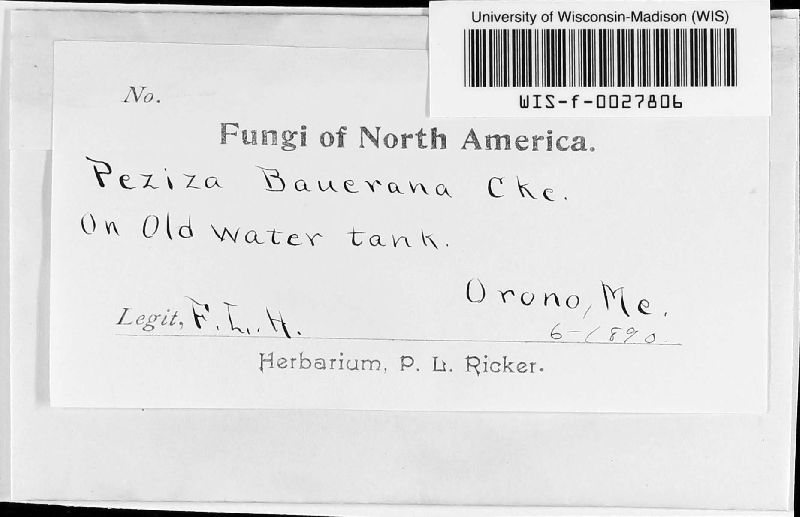 University of Wisconsin-Madison (WIS)
WIS-f-0027806
No.
Fungi of North America.
Peziza Bauerana Cke.
On Old water tank.
Orono, Me.
Legit, F. L. H.
6-1890
Herbarium, P. L. Ricker.